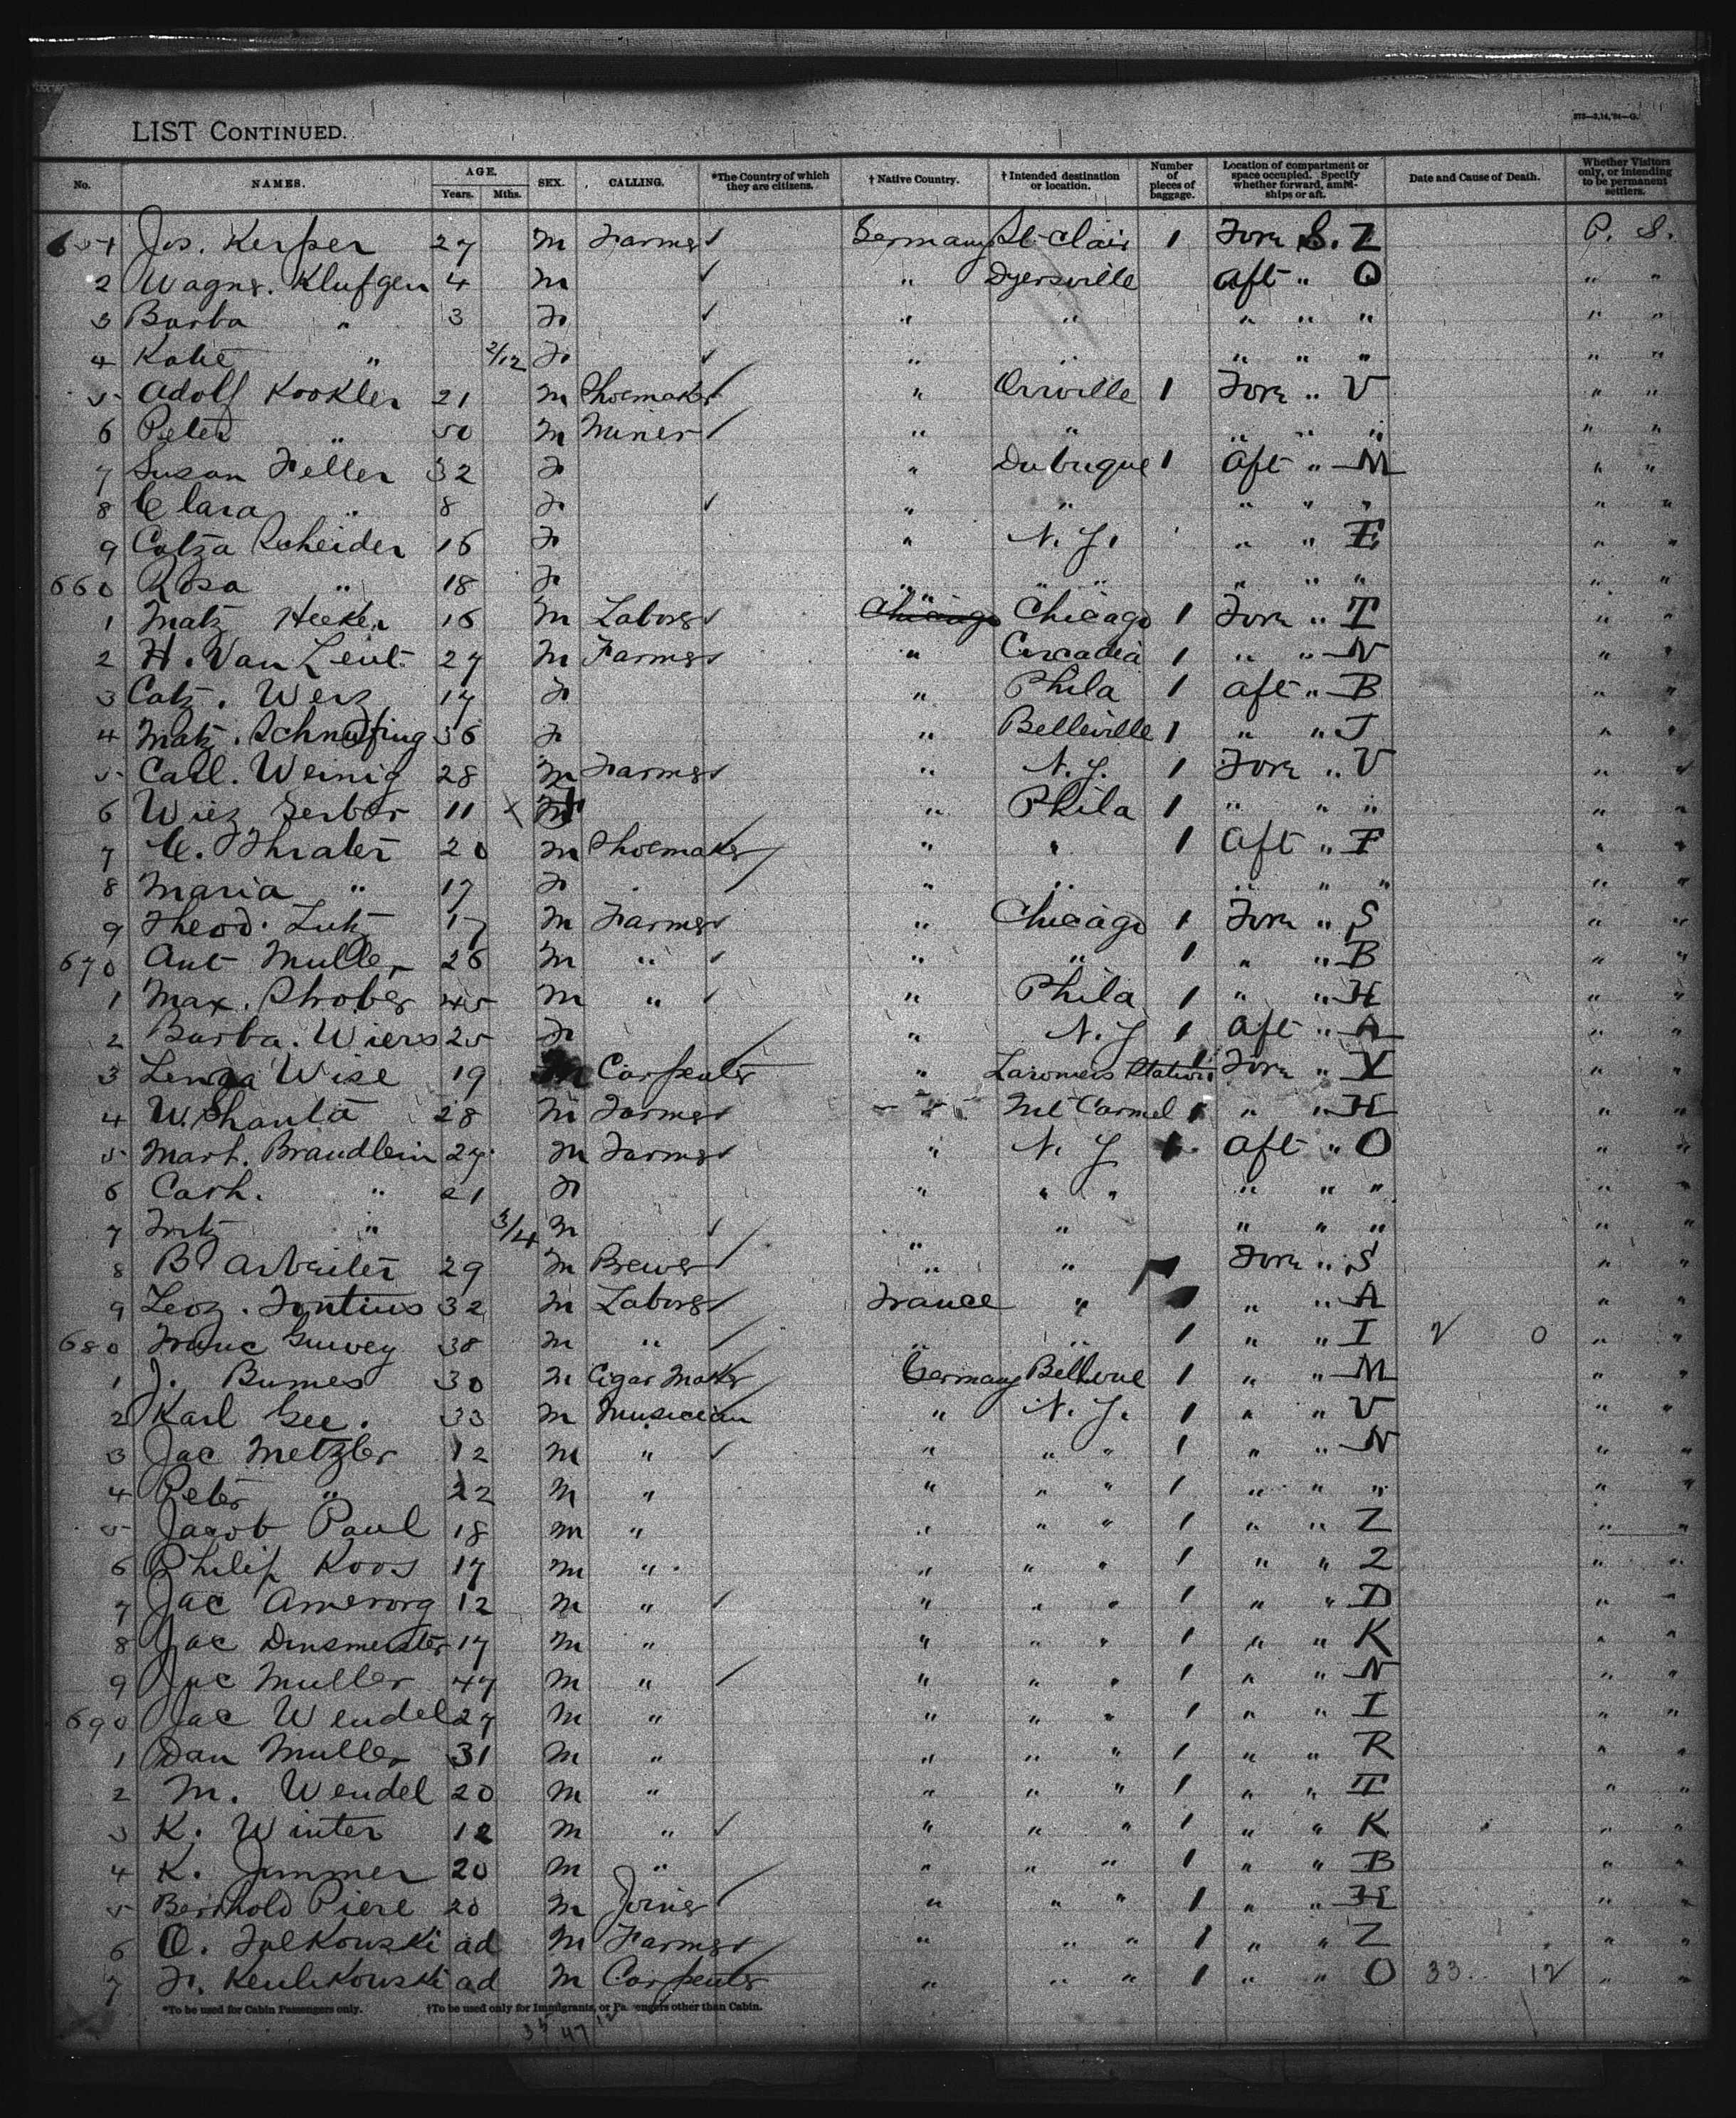 LIST CONTINUED.
No. NAMES. AGE. Years. Mths. SEX. CALLING. *The Country of which they are citizens. † Native Country. † Intended destination or location. Number of pieces of baggage. Location of compartment or space occupied. Specify whether forward, amidships or aft. Date and Cause of Death. Whether Visitors only, or intending to be permanent settlers.
651 Jos. Kerper 27 m Farmer ✓ Germany St. Clair 1 Forw S. Z P. S.
2 Wagnr. Klufgen 4 m ✓ " Dyersville Aft " O " "
3 Barba " 3 F ✓ " " " " " " "
4 Kate " 2/12 F ✓ " " " " " " "
5 Adolf Kookler 21 m Shoemaker " Orrville 1 Forw " V " "
6 Peter " 50 m Miner " " " " " " "
7 Susan Feller 32 F " Dubuque 1 Aft " M " "
8 Clara " 8 F ✓ " " " " " " "
9 Catza Scheider 16 F " N. Y. " " E " "
660 Rosa " 18 F " " " " " " " " "
1 Matz Hecker 16 m Labores Chicago Chicago 1 Forw " T " "
2 H. Van Lent 27 m Farmer " Arcadia 1 " " N " "
3 Catz. Werz 17 F " Phila 1 Aft " B " "
4 Matz. 36 F " Belleville 1 " " J " "
5 Carl. Weinig 28 m Farmer " N. Y. 1 Forw " V " "
6 Wiez Gerber 11 x " Phila 1 " " " " "
7 C. Thrater 20 m Shoemaker " " 1 Aft " F " "
8 Maria " 17 F " " " " " " "
9 Theod. Lutz 17 m Farmer " Chicago 1 Forw " S " "
670 Ant Muller 26 m " ✓ " " 1 " " B " "
1 Max. Strober 45 m " ✓ " Phila 1 " " H " "
2 Barba. Wiers 25 F " N. Y 1 Aft " A " "
3 Wise 19 m Carpenter " Station Forw " V " "
4 W. Shanta 28 m Farmer " Mt Carmel 1 " " H " "
5 Mart. Braudlein 27 m Farmer " N. Y 1 Aft " O " "
6 Cath. " 21 F " " " " " " " "
7 Fritz " 3/4 m ✓ " " " " " " "
8 B Arbeiter 29 m Brewer " " Forw " S " "
9 Leoz. Fontius 32 m Labores France " " " A " "
680 Franc 38 m " " " 1 " " I 2 0 " "
1 J. Bumes 30 m Cigar Maker Germany Bellevue 1 " " M " "
2 Karl Gee. 33 m Musician " N. Y. 1 " " V " "
3 Jac Metzler 12 m " ✓ " " " 1 " " N " "
4 Peter " 22 m " " " " 1 " " " " "
5 Jacob Paul 18 m " " " " 1 " " Z " "
6 Philip Koos 17 m " " " " 1 " " 2 " "
7 Jac Amerorg 12 m " ✓ " " " 1 " " D " "
8 Jac Dinsmeister 17 m " " " " 1 " " K " "
9 Jac Muller 47 m " " " " 1 " " N " "
690 Jac Wendel 27 m " " " " 1 " " I " "
1 Dan Muller 31 m " " " " 1 " " R " "
2 M. Wendel 20 m " " " " 1 " " T " "
3 K. Winter 12 m " ✓ " " " 1 " " K " "
4 K. Jimmer 20 m " " " " 1 " " B " "
5 Berthold Piere 20 m Joiner " " " 1 " " H " "
6 O. Folkowski ad m Farmer " " " 1 " " Z " "
7 F. Keulikowski ad m Carpenter " " " 1 " " O 33 12 " "
*To be used for Cabin Passengers only. †To be used only for Immigrants, or Passengers other than Cabin.
35 47 12